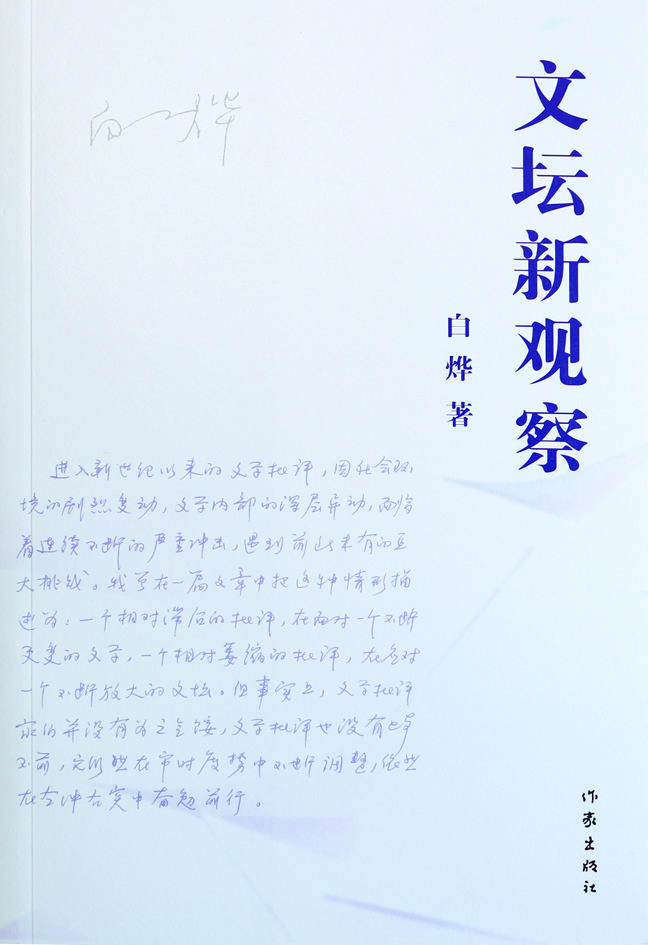 文坛新观察
白烨 著
白烨
进入新世纪以来的文学批评，因社会环
境的剧烈变动，文学内部的深层异动，面临
着连续不断的严重冲击，遇到前所未有的巨
大挑战。我曾在一篇文章中把这种情形描
述为：一个相对滞后的批评，在面对一个不断
更变的文学，一个相对萎缩的批评，在应对
一个不断放大的文坛。但事实上，文学批评
家们并没有为之气馁，文学批评也没有
不前，它们既在审时度势中不断调整，依然
在左冲右突中奋勉前行。
作家出版社